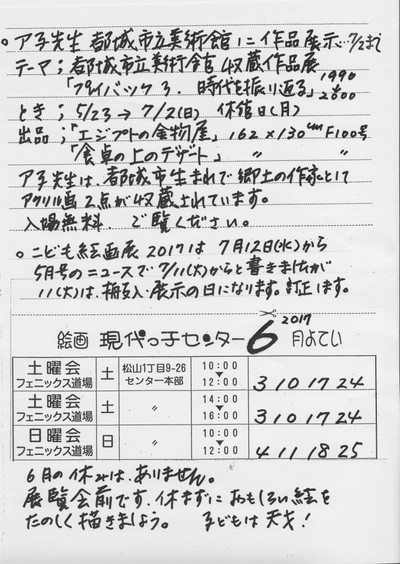 。ア子先生 都城市立美術館に作品展示…7/2まで
テーマ；都城市立美術館収蔵作品展
「プライバック3. 時代を振り返る」1990〜2000
とき；5/23→7/2(日) 休館日(月)
出品；「エジプトの金物屋」162×130cm F100号
「食卓の上のデザート」 〃 〃
ア子先生は、都城市生まれで郷土の作家として
アクリル画2点が収蔵されています。
入場無料. ご覧ください。
。こども絵画展2017は7月12日(水)から
5月号のニュースで7/11(火)からと書きましたが
11(火)は、搬入・展示の日になります。訂正します。
絵画 現代っ子センター 6 2017 月よてい
土曜会 フェニックス道場 土 松山1丁目9-26 センター本部 10:00 ▼ 12:00 3 10 17 24
土曜会 フェニックス道場 土 〃 14:00 ▼ 16:00 3 10 17 24
日曜会 フェニックス道場 日 〃 10:00 ▼ 12:00 4 11 18 25
6月の休みは、ありません。
展覧会前です. 休まずにおもしろい絵を
たのしく描きましょう。 子どもは天才！